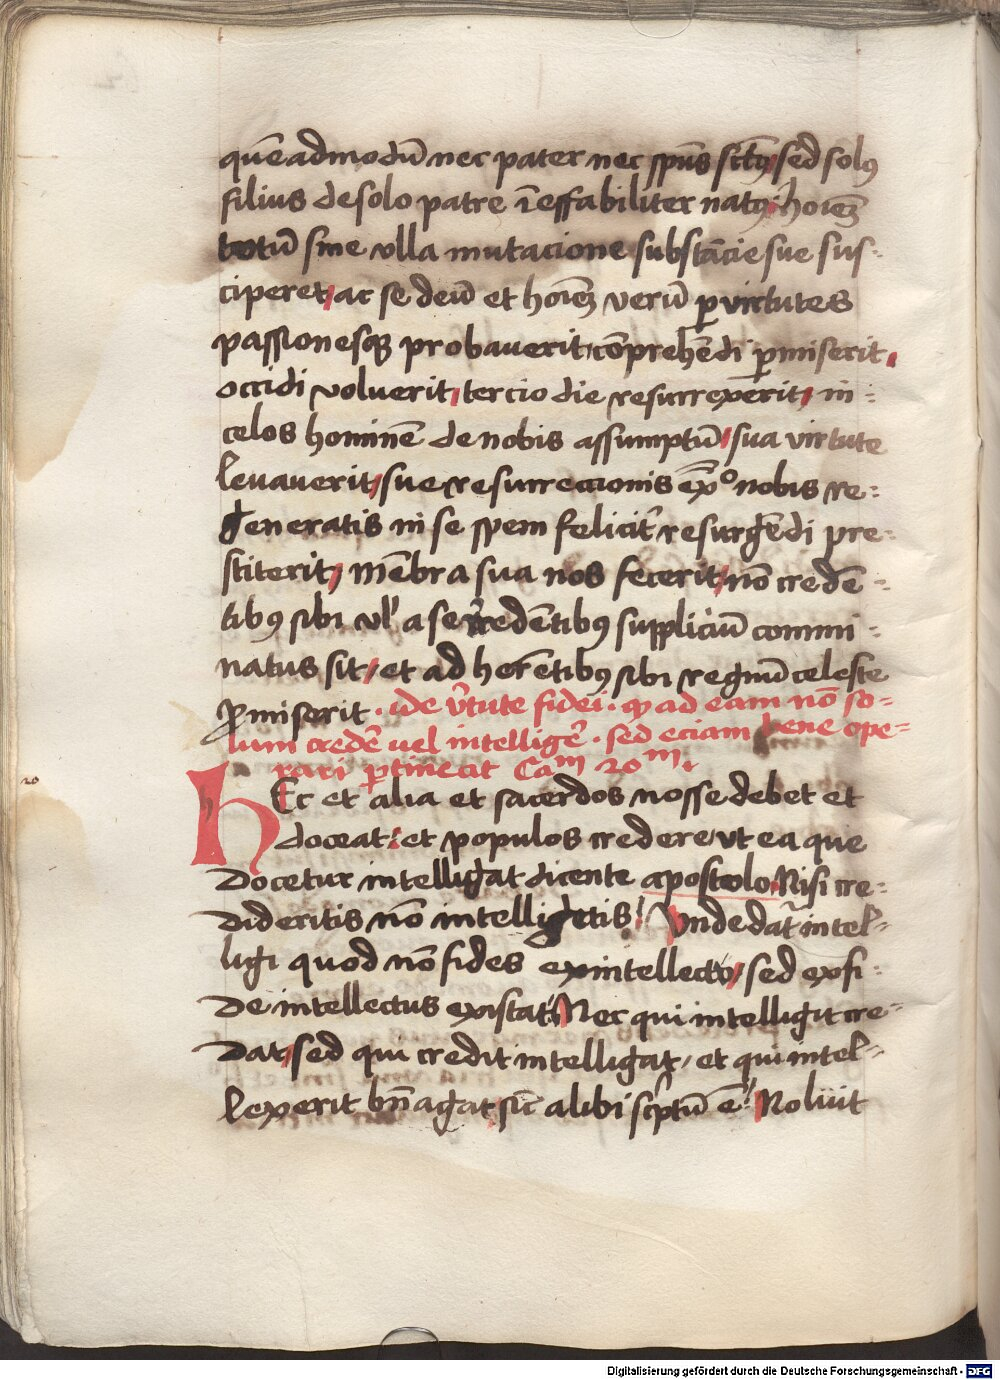 quēadmodū nec pater nec spūs sctꝰ sed solꝰ
filius de solo patre ineffabiliter natꝰ hoīeꝫ
totū sine vlla mutacione substācie sue sus-
ciperet ac se deū et hoīeꝫ verū ꝑ virtutes
passionesqꝫ probauerit cōprehēdi ꝑmiserit
occidi voluerit tercio die resurrexerit in-
celos hominē de nobis assumptū sua virtute
leuauerit sue resurreccionis exᵒ nobis re-
generatis in se spem felicitʼ resurgēdi pre-
stiterit mēbra sua nos fecerit nō credē-
tibꝰ sibi vlʼ a se redētibꝰ suppliciū commi-
natus sit et ad herētibꝰ sibi regnū celeste
ꝓmiserit . ide vʼtute fidei . qꝫ ad eam nō so-
lum credēʼ uel intelligēʼ . sed eciam bene ope-
rari ꝑtineat Caᵐ 20ᵐ.
20
HEc et alia et sacerdos nosse debet et
doceat et populos credere vt ea que
docetur intelligat dicente apostolo Nisi cre-
dideritis nō intelligetis Vnde datʼ intel-
ligi quod nō fides ex intellectu sed ex fi-
de intellectus existat Nec qui intelligit cre-
dat sed qui credit intelligat et qui intel-
lexerit bn̄ agat sic̄ alibi scptū ē Noluit
Digitalisierung gefördert durch die Deutsche Forschungsgemeinschaft - DFG